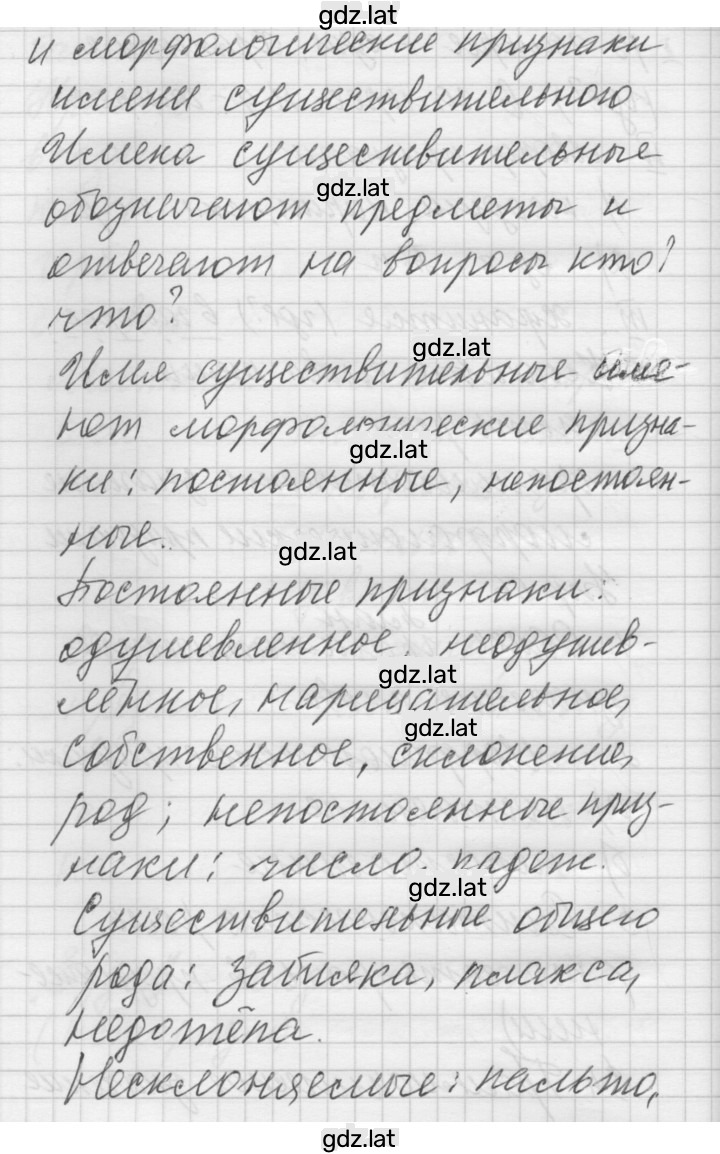 gdz.lat
и морфологические признаки
имени существительного
Имена существительные
gdz.lat
обозначают предметы и
отвечают на вопросы кто?
что?
gdz.lat
Имя существительные име-
ют морфологические призна-
gdz.lat
ки: постоянные, непостоян-
ные.
gdz.lat
Постоянные признаки:
одушевленное. неодушев-
gdz.lat
лённое, нарицательное,
gdz.lat
собственное, склонение,
род; непостоянные приз-
наки: число. падеж.
gdz.lat
Существительные общего
рода: забияка, плакса,
недотёпа.
Несклоняемые: пальто,
gdz.lat